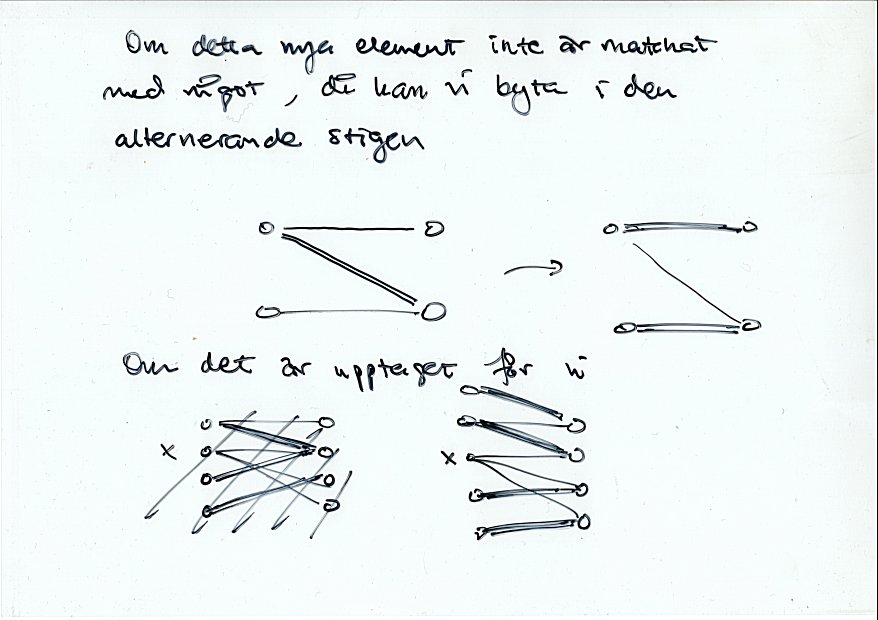 Om detta nya element inte är matchat
med något, då kan vi byta i den
alternerande stigen
Om det är upptaget för vi
x
x